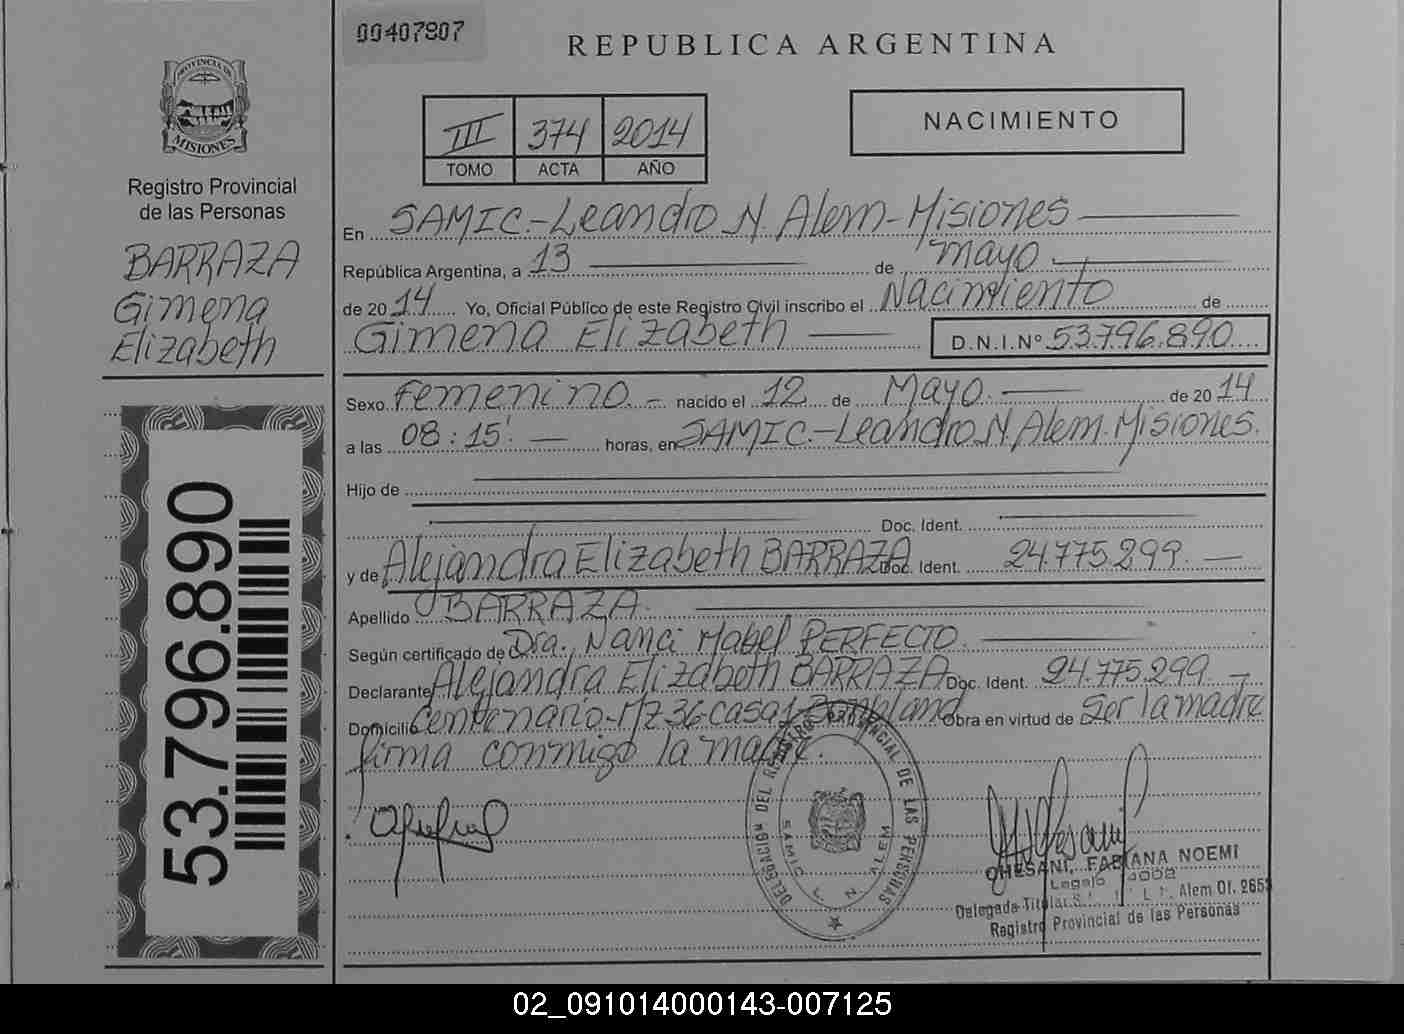 00407807
REPUBLICA ARGENTINA
PROVINCIA DE
MISIONES
Registro Provincial
de las Personas
BARRAZA
Gimena
Elizabeth
53.796.890
III 374 2014
TOMO ACTA AÑO
NACIMIENTO
En SAMIC.-Leandro N. Alem-Misiones
República Argentina, a 13 de mayo
de 2014 Yo, Oficial Público de este Registro Civil inscribo el Nacimiento de
Gimena Elizabeth D.N.I.Nº 53.796.890
Sexo Femenino.- nacido el 12 de Mayo. de 2014
a las 08:15'. horas, en SAMIC.-Leandro N. Alem.Misiones.
Hijo de
Doc. Ident.
y de Alejandra Elizabeth BARRAZA Doc. Ident. 24.775.299.
Apellido BARRAZA.
Según certificado de Dra. Nanci Mabel PERFECTO.
Declarante Alejandra Elizabeth BARRAZA Doc. Ident. 24.775.299.
Domicilio Centenario-Mz 36-casa 1- Obra en virtud de Ser la madre
firma conmigo la madre.
DELEGACION DEL REGISTRO PROVINCIAL DE LAS PERSONAS
SAMIC L. N. ALEM
FABIANA NOEMI
Legajo
Delegada Titular Alem Of. 2653
Registro Provincial de las Personas
02_091014000143-007125